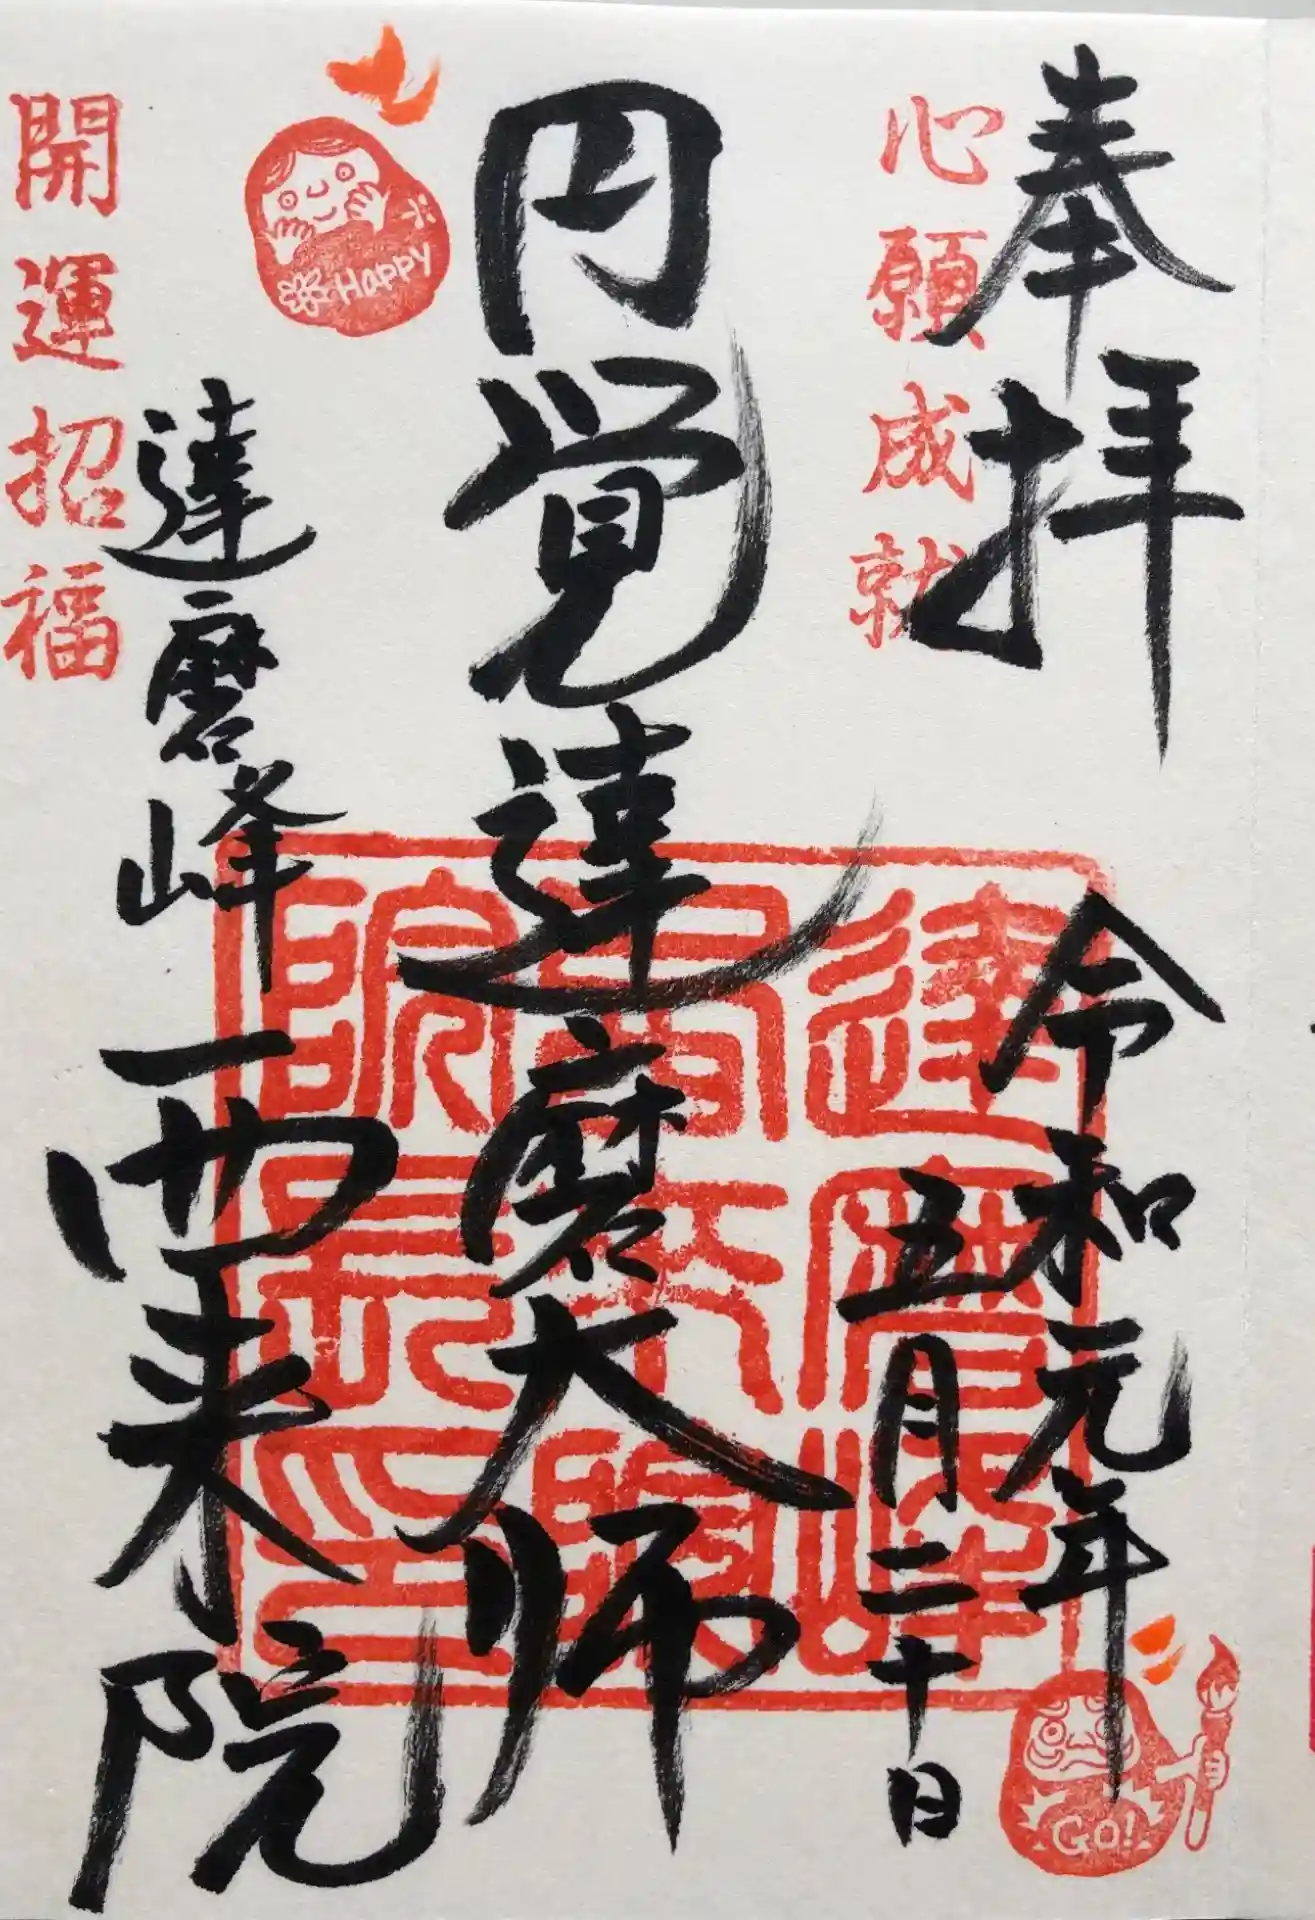 奉拝
心願成就
令和元年
五月二十日
円覚達磨大师
Happy
達磨峰
西来院
開運招福
GO!